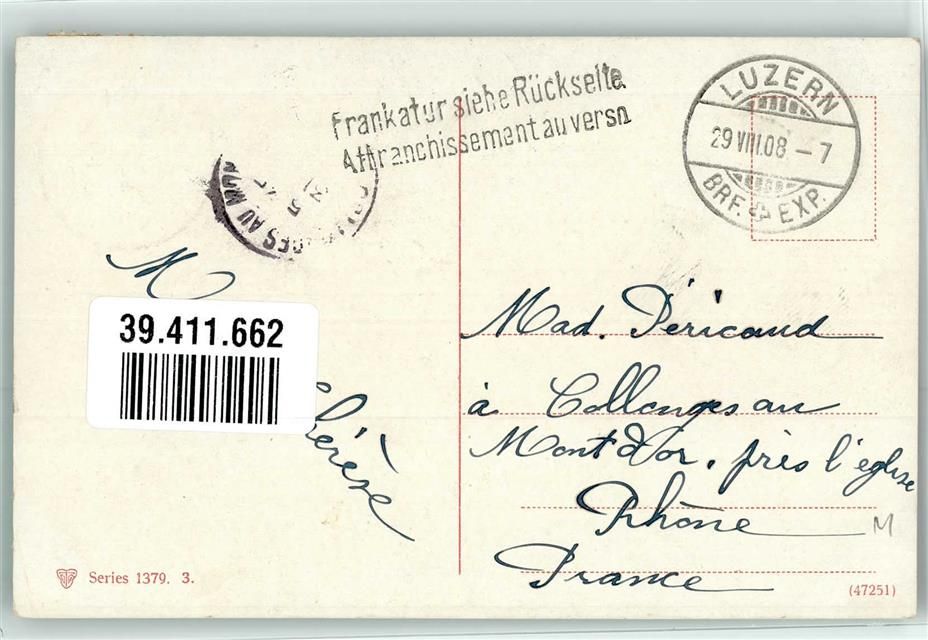 Frankatur siehe Rückseite.
Affranchissement au verso
LUZERN
29 VIII.08 – 7
BRF. EXP.
GES AU MON
M
39.411.662
Thérèse
Mad. Péricaud
à Collonges au
Mont d'Or, près l'église
Rhône
France
M
Series 1379. 3.
(47251)